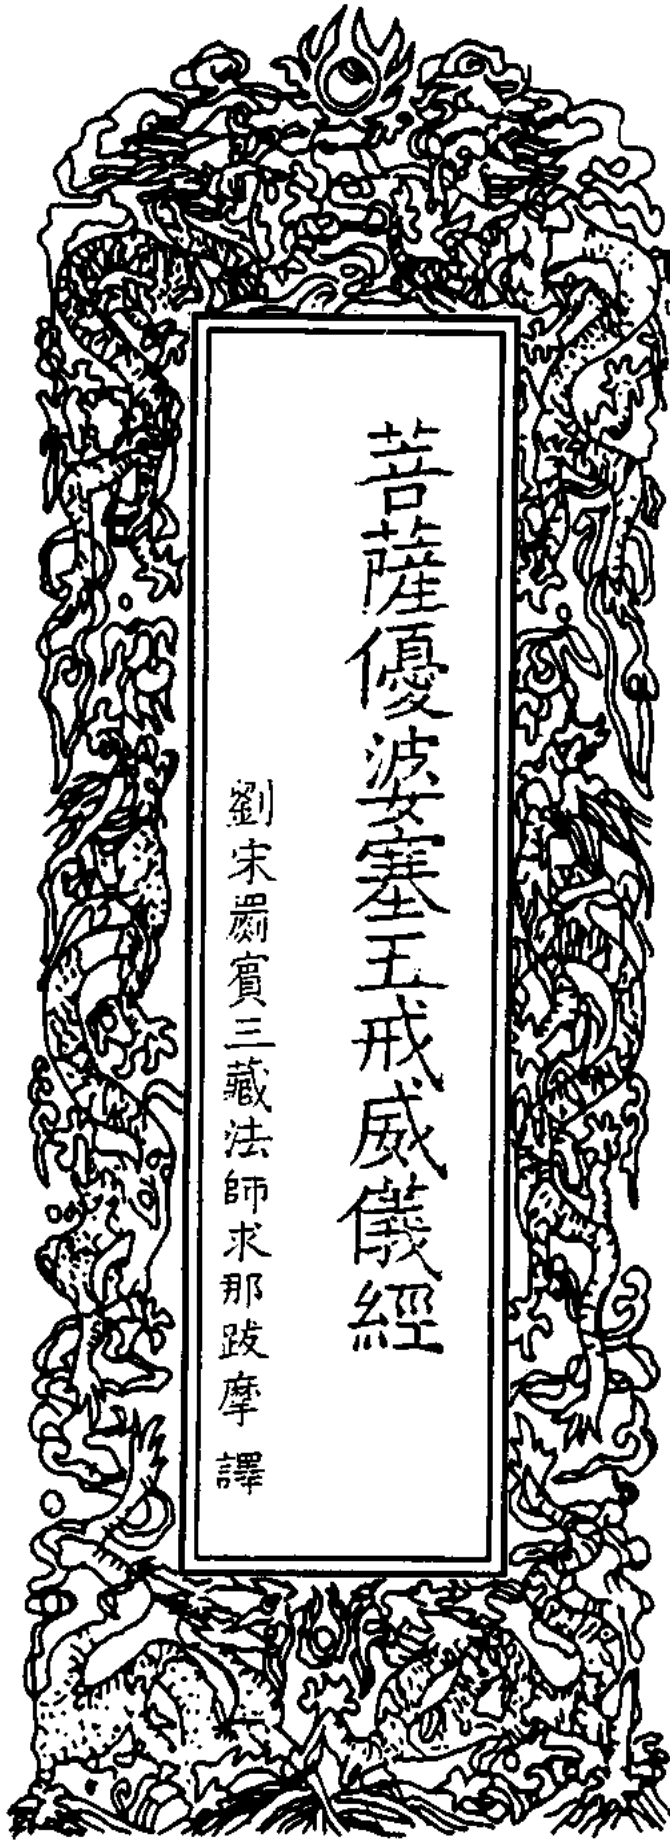 菩薩優婆塞五戒威儀經
劉宋罽賓三藏法師求那跋摩 譯